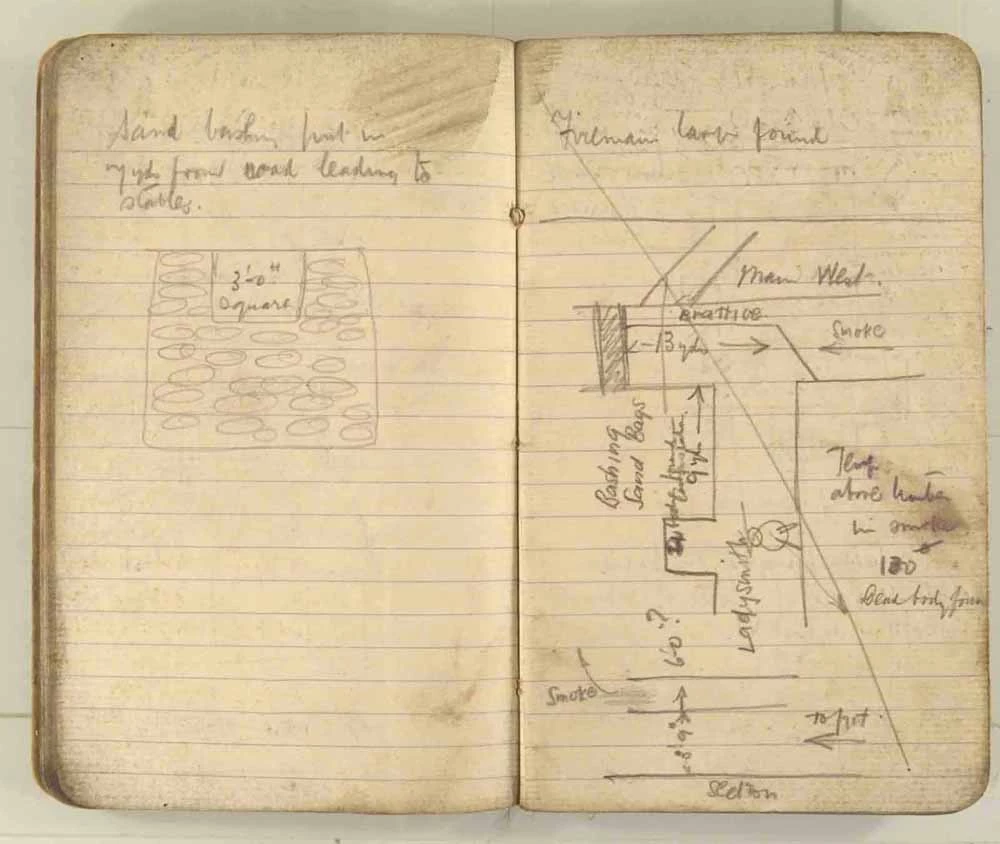 Sand bashing put in
7 yds from road leading to
stables.
3'-0"
Square
Fireman lamp found
Main West.
Brattice
13 yds
Smoke
Bashing
Sand Bags
9 yds
Temp
above timber
in smoke
130°
Dead body foun
Ladysmith
6-0?
Smoke
8'9"
To pit.
Section